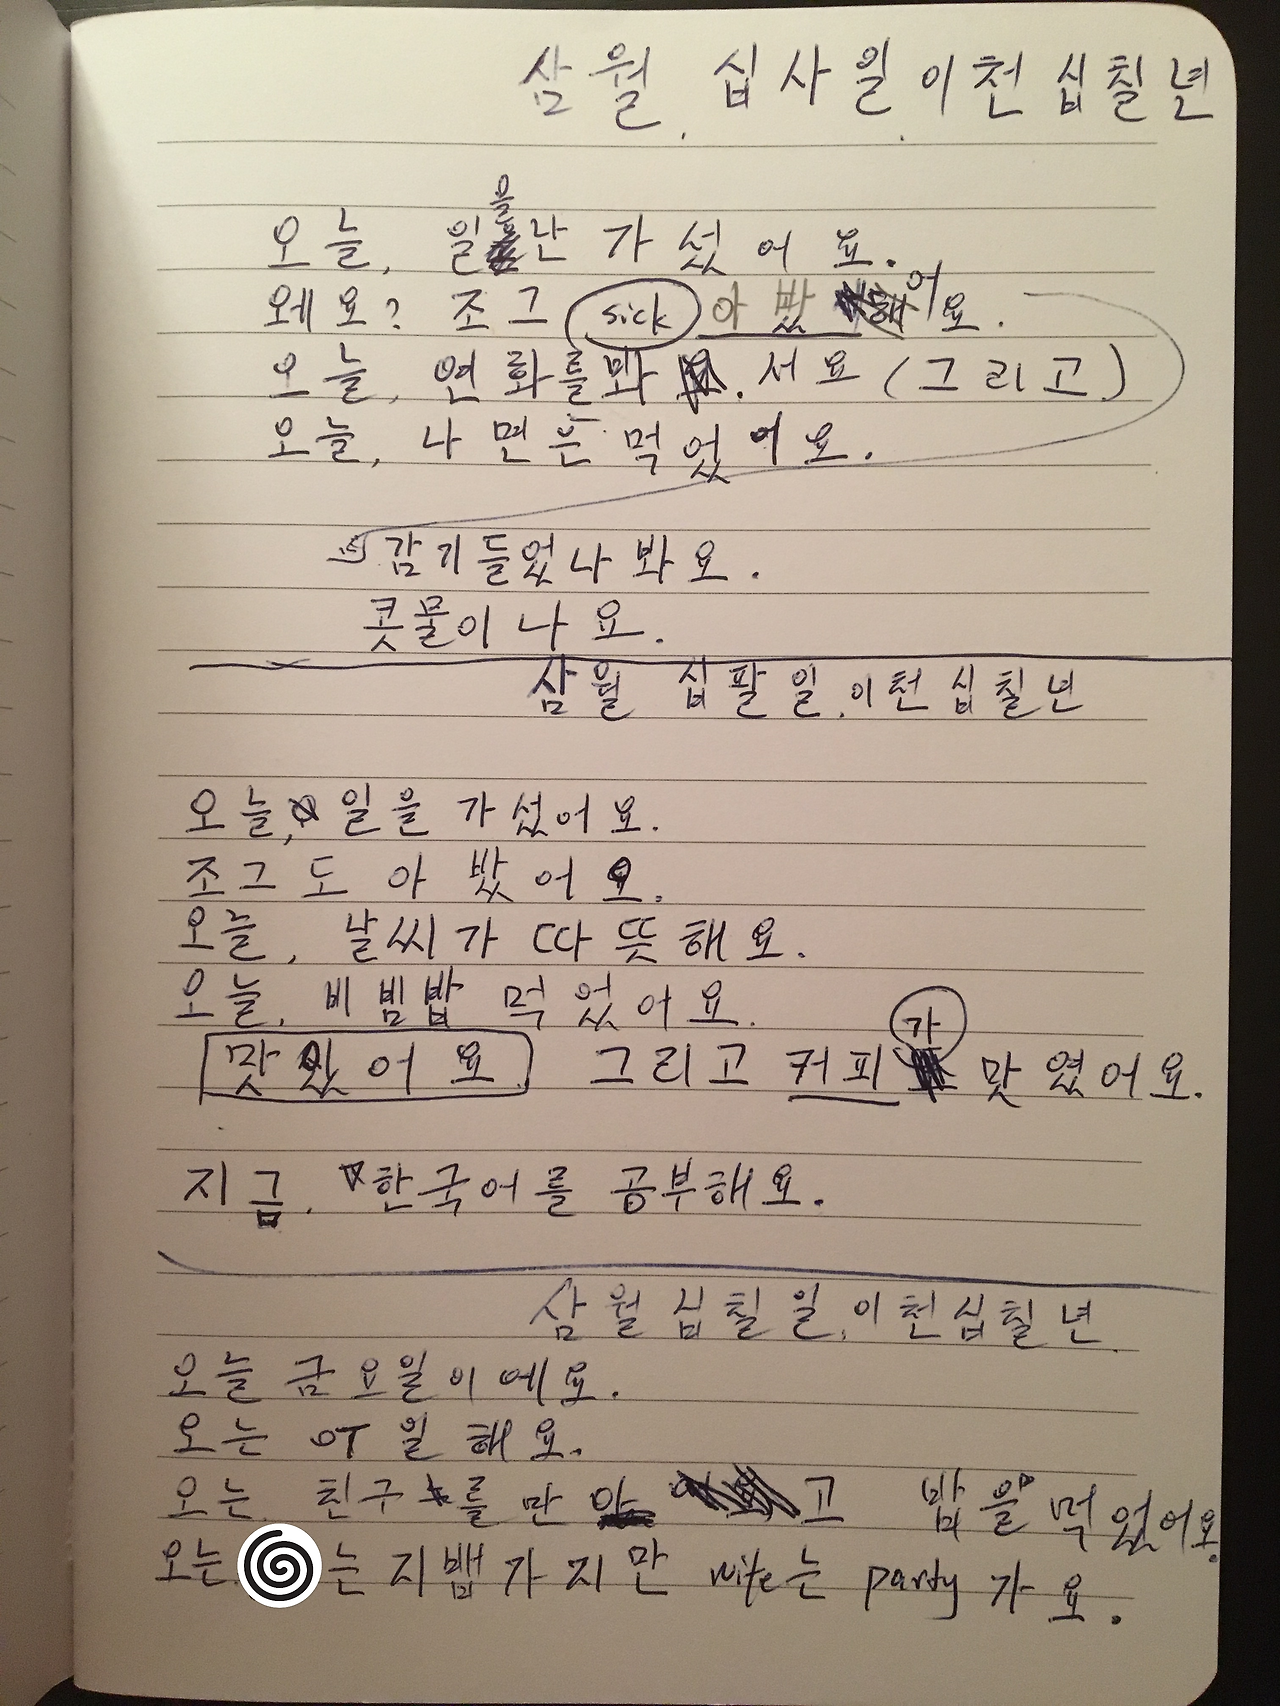 삼월 십사일 이천십칠년
오늘, 일을 난 가섰어요.
웨요? 조그 sick 아밨어요.
오늘, 연화를 봐.서요 (그리고)
오늘, 나면은 먹었어요.
감기들었나봐요.
콧물이 나요.
삼월 십팔일, 이천십칠년
오늘, 일을 가섰어요.
조그도 아밨어요.
오늘, 날씨가 따뜻해요.
오늘, 비빔밥 먹었어요.
맛있어요 그리고 커피가 맛였어요.
지금, 한국어를 공부해요.
삼월 십칠일, 이천십칠년
오늘 금요일이에요.
오는 아일해요.
오는 친구를 만고 밥을 먹었어요.
오는 는 지뱁 가지만 wife는 party 가요.